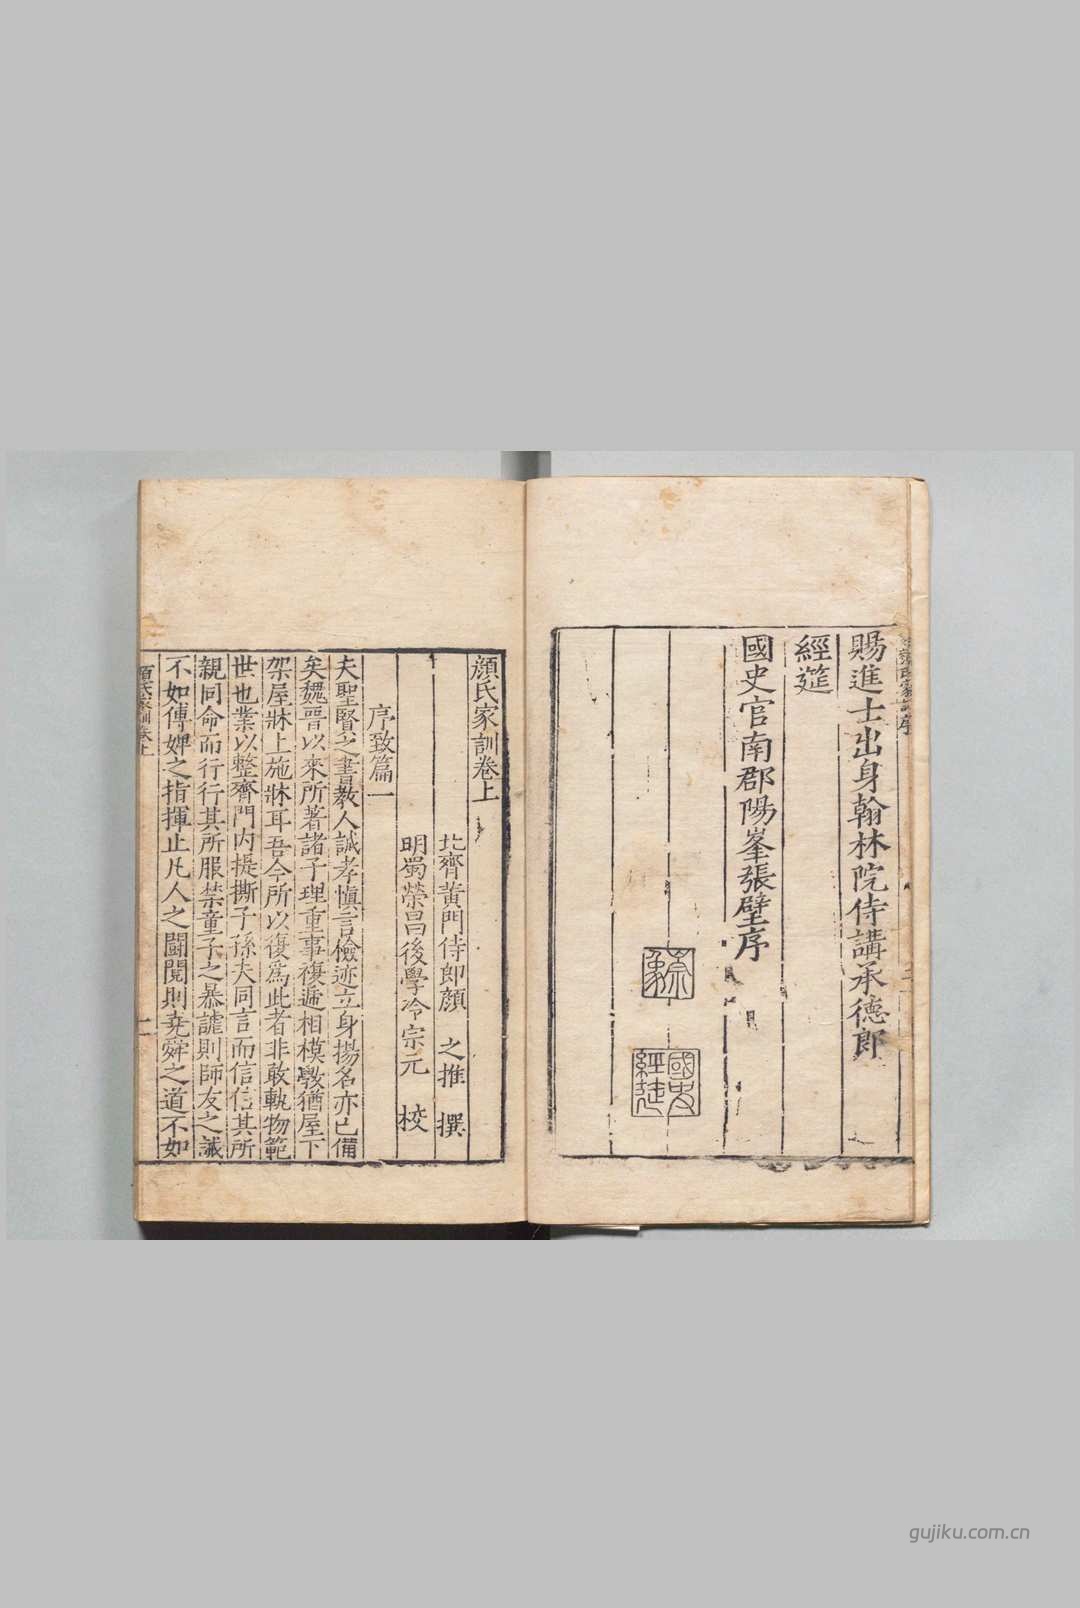 賜進士出身翰林院侍講承德郎
經筵
國史官南郡陽峯張璧序
國史
經筵
顔氏家訓卷上
北齊黄門侍郎顔之推撰
明蜀榮昌後學冷宗元校
序致篇一
夫聖賢之書教人誠孝慎言儉迹立身揚名亦已備
矣魏晉以來所著諸子理重事複遞相模斆猶屋下
架屋牀上施牀耳吾今所以復爲此者非敢軌物範
世也業以整齊門内提撕子孫夫同言而信信其所
親同命而行行其所服禁童子之暴謔則師友之誡
不如傅婢之指揮止凡人之鬭䦧則堯舜之道不如
顔氏家訓卷上
一
gujiku.com.cn